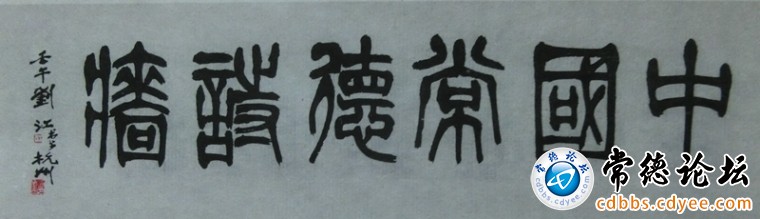 中國常德詩牆
壬午劉江書于杭州
常德论坛
常德论坛
cdbbs.cdyee.com